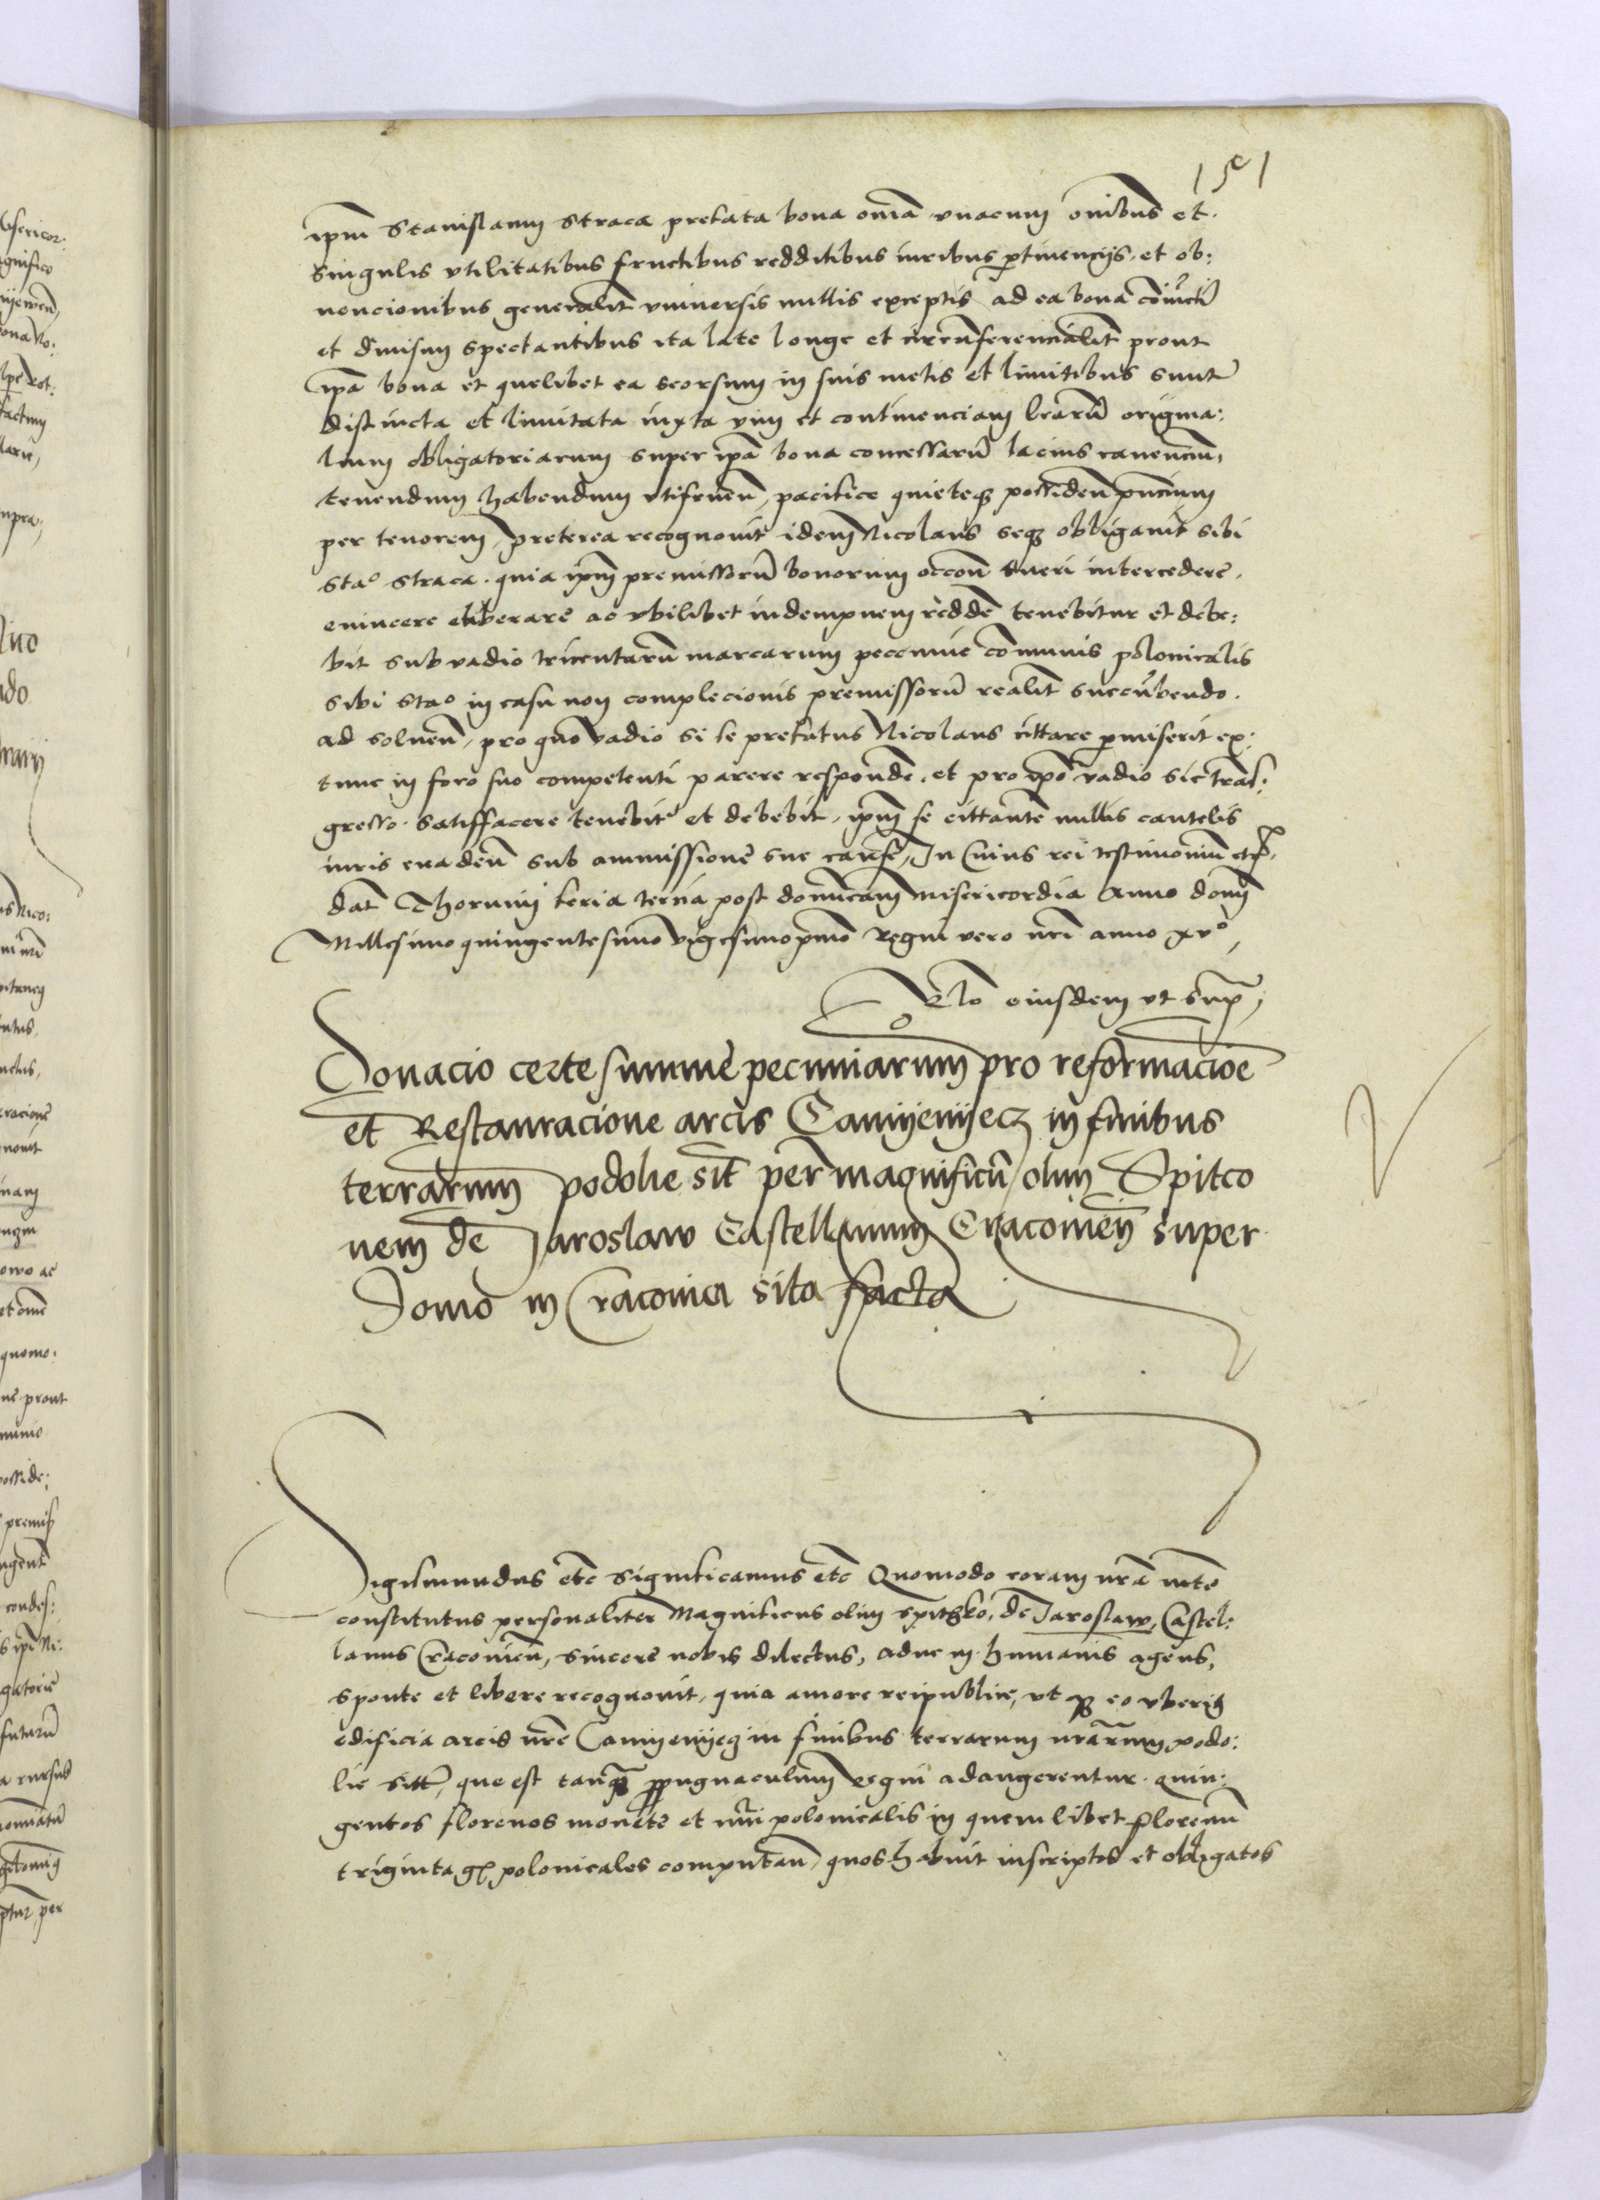 151
ipm Stanislaum Straca prefata bona omia vnacum omibus et
singulis vtilitatibus fructibus redditibus iuribus ptinencijs et ob:
uencionibus generalit vniuersis nullis exceptis ad ea bona coniuctı
et diuisim spectantibus ita late longe et circumferencialit prout
ipa bona et quelibet ea seorsum in suis metis et limitibus sunt
distincta et limitata iuxta vim et continenciam lrarum origina:
lium obligatoriarum super ipa bona concessarum lacius canencium,
tenendum habendum vtifruen, pacifice quieteq possiden pncium
per tenorem, preterea recognouit idem Nicolaus seq obligauit sibi
Stao Straca quia ipm premissorum bonorum occon tueri intercedere
euincere eliberare ac vbilibet indempnem redde tenebitur et debe:
bit sub vadio tricentarum marcarum peccunie comunis polonicalis
sibi Stao in casu non complecionis premissorum realit succubendo
ad soluen, pro quo vadio si se prefatus Nicolaus cittare pmiserit ex:
tunc in foro suo competenti parere responde et pro ipo vadio sic trans:
gresso satisfacere tenebit et debebit, ipm se cittante nullis cautelis
iuris euaden sub ammissione sue cause, In Cuius rei testimonium etc
dat Thorunij feria tercia post dominicam Misericordia Anno domi
Millesimo quingentesimo vigesimoprimo Regni vero nri anno xvo,
Rlo eiusdem vt supra,
Donacio certe summe pecuniarum pro reformacioe
et Restauracione arcis Camijenijecz in finibus
terrarum podolie sit per magnificum olim Spitco
nem de Jaroslaw Castellanum Cracouien super
Domo in Cracouia sita facta
Sigismundus etc Significamus etc Quomodo coram nra mte
constitutus personaliter Magnificus olim Spithko, de Jaroslaw, Castel:
lanus Cracouien, sincere nobis dilectus, aduc in humanis agens,
sponte et libere recognouit, quia amore reipublice, vt q eo vberig
edificia arcis nre Camijenijecz in finibus terrarum nrarum podo:
lie sitt, que est tanq propugnaculum regni adaugerentur quin:
gentos florenos monete et nuri polonicalis in quemlibet florenum
triginta gr polonicales computan, quos habuit inscriptos et obligatos